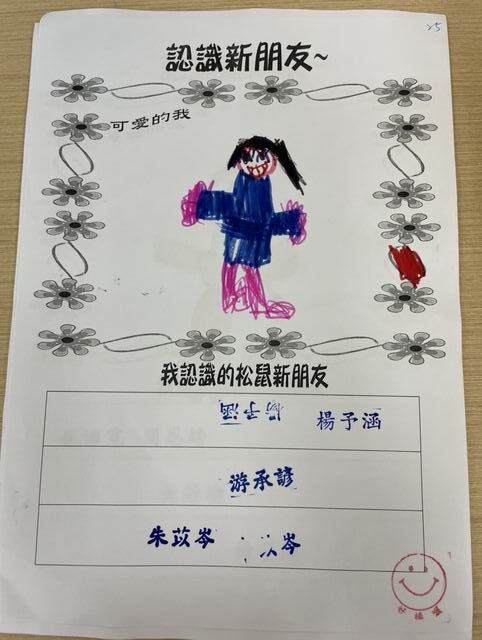 25
認識新朋友~
可愛的我
我認識的松鼠新朋友
楊予涵 楊予涵
游承諺
朱苡岑 苡岑